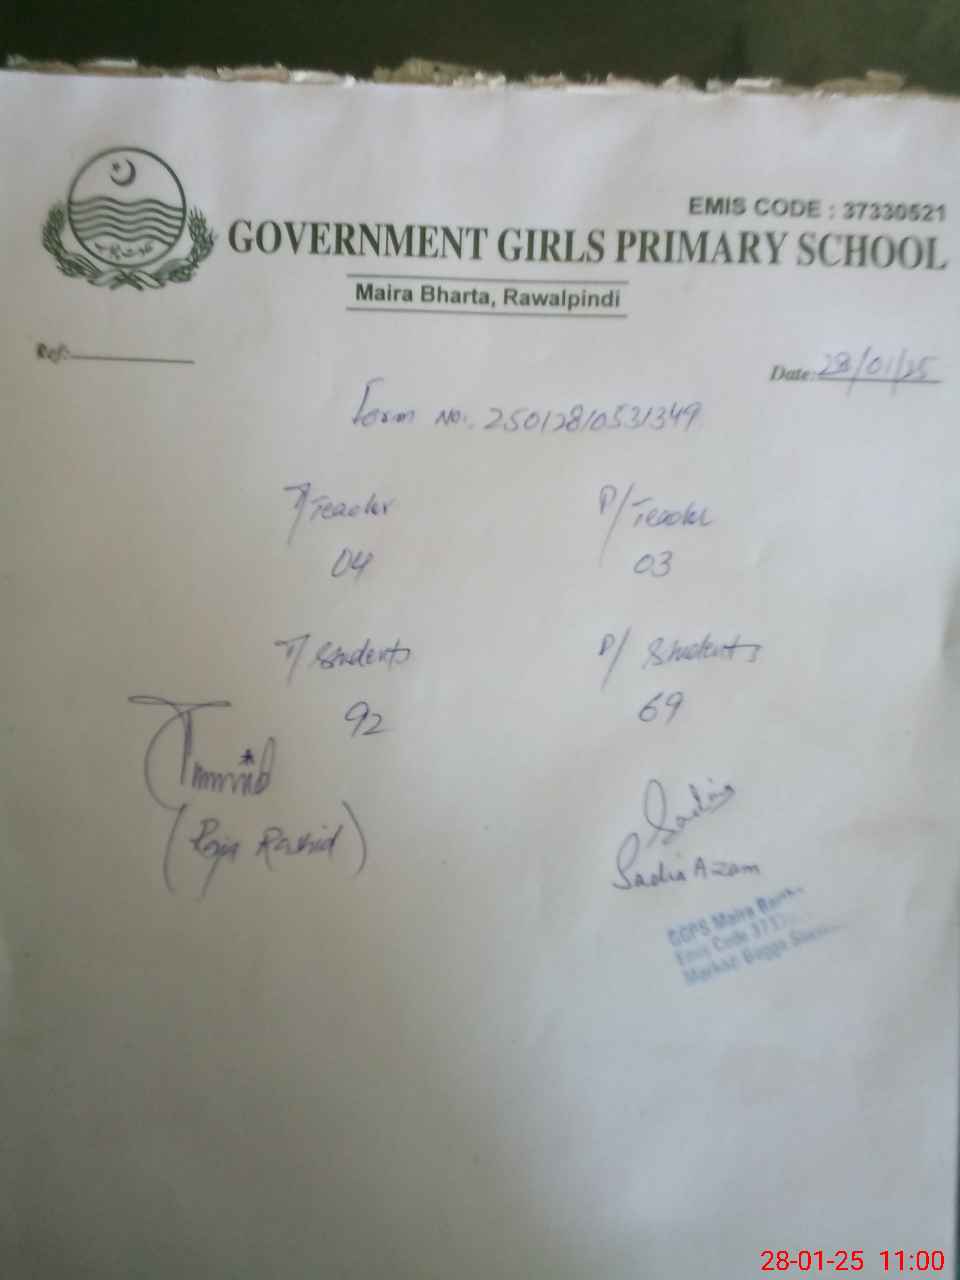 EMIS CODE : 37330521
GOVERNMENT GIRLS PRIMARY SCHOOL
Maira Bharta, Rawalpindi
Ref:
Date: 28/01/25
Form No. 25012810531349
T/Teacher P/Teacher
04 03
T/Students P/Students
92 69
(Raja Rashid)
Sadia
Sadia Azam
GGPS Maira
Emis Code
Markaz
28-01-25 11:00